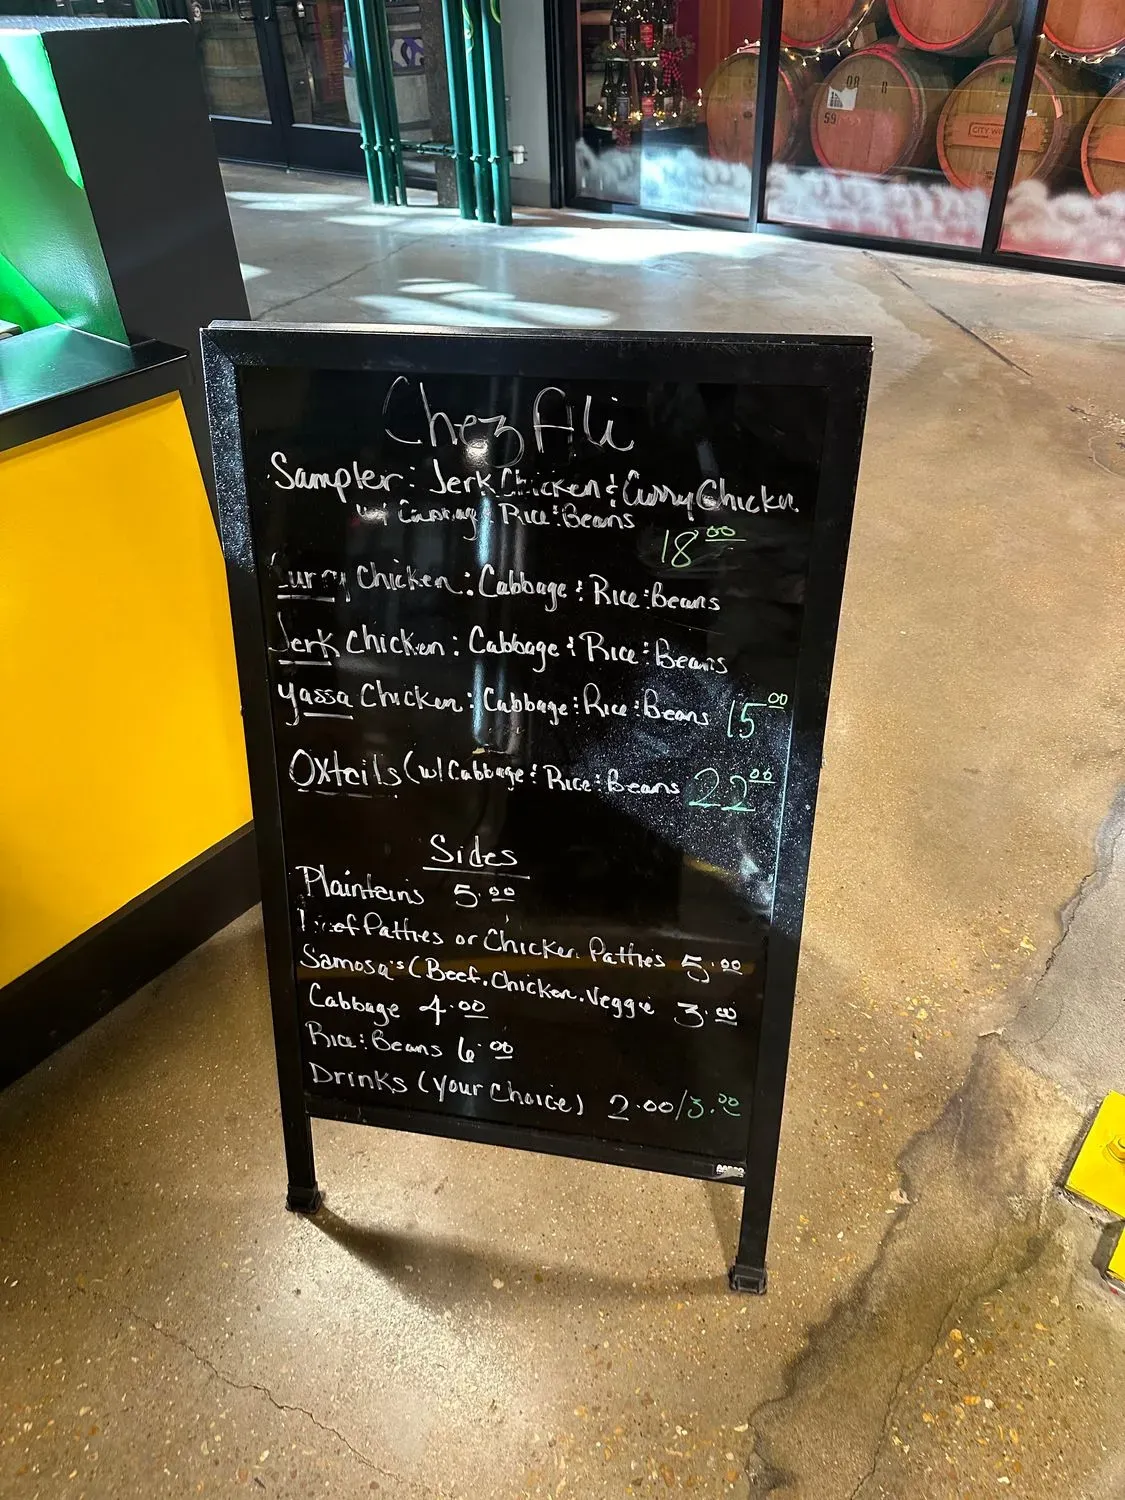 Chez Ali
Sampler: Jerk Chicken & Curry Chicken
w/ Cabbage & Rice & Beans
18.00
Curry Chicken: Cabbage & Rice & Beans
Jerk Chicken: Cabbage & Rice & Beans
Yassa Chicken: Cabbage & Rice & Beans 15.00
Oxtails (w/ Cabbage & Rice & Beans 22.00
Sides
Plaintains 5.00
Beef Patties or Chicken Patties 5.00
Samosa's (Beef, Chicken, Veggie 3.00
Cabbage 4.00
Rice & Beans 6.00
Drinks (Your Choice) 2.00/3.00
08
59
CITY WINERY